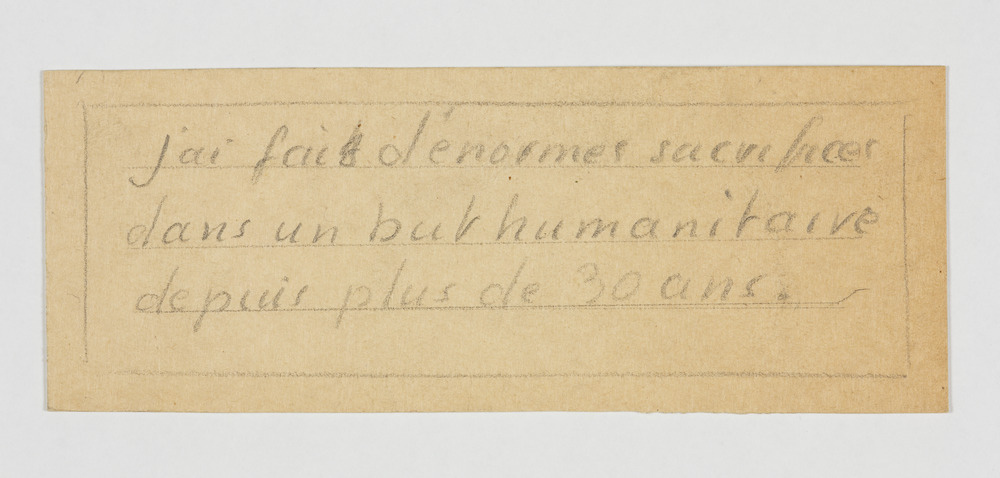 J'ai fait d'énormes sacrifices
dans un but humanitaire
depuis plus de 30 ans.